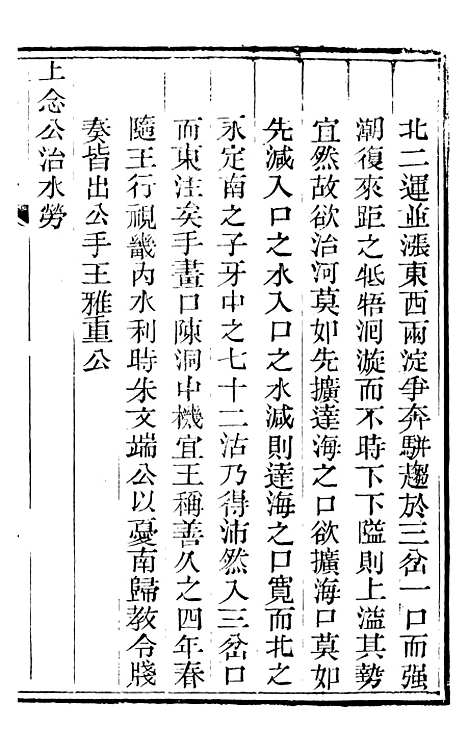 北二運並漲東西兩淀爭奔駢趨於三岔一口而强
潮復來距之牴牾洄漩而不時下下隘則上溢其勢
宜然故欲治河莫如先擴達海之口欲擴海口莫如
先減入口之水入口之水減則達海之口寬而北之
永定南之子牙中之七十二沽乃得沛然入三岔口
而東注矣手畫口陳洞中機宜王稱善久之四年春
隨王行視畿內水利時朱文端公以憂南歸教令牋
奏皆出公手王雅重公
上念公治水勞